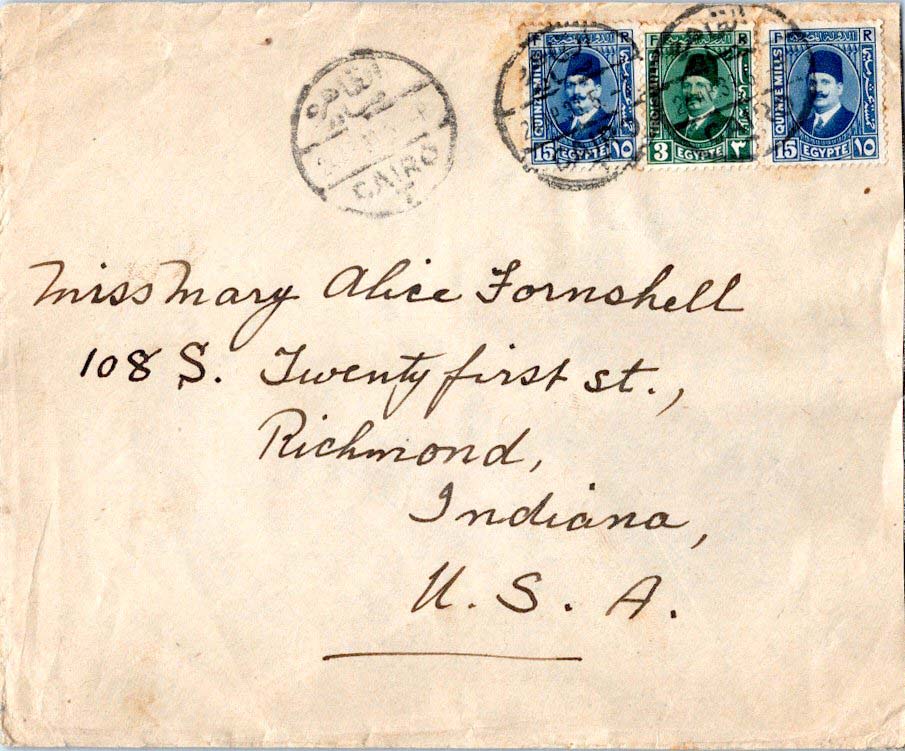 F R
QUINZE MILLS
15 EGYPTE ١٥
F R
3 EGYPTE ٣
F R
QUINZE MILLS
15 EGYPTE ١٥
القاهرة
CAIRO
Miss Mary Alice Fornshell
108 S. Twenty first st.,
Richmond,
Indiana,
U. S. A.